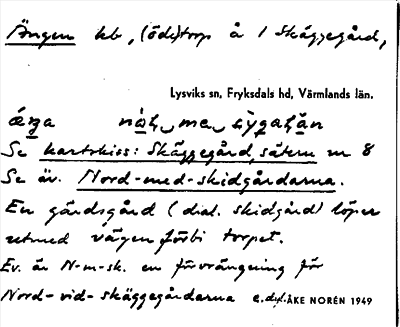 Ängen hb, (öde)torp å 1 Skäggegård,
Lysviks sn, Fryksdals hd, Värmlands län.
Se kartskiss: Skäggegård, sätern nr 8
Se äv. Nord-med-skidgårdarna.
En gärdsgård (dial. skidgård) löper
utmed vägen förbi torpet.
Ev. är N-m-sk. en förvrängning för
Nord-vid-skäggegårdarna ÅKE NORÉN 1949